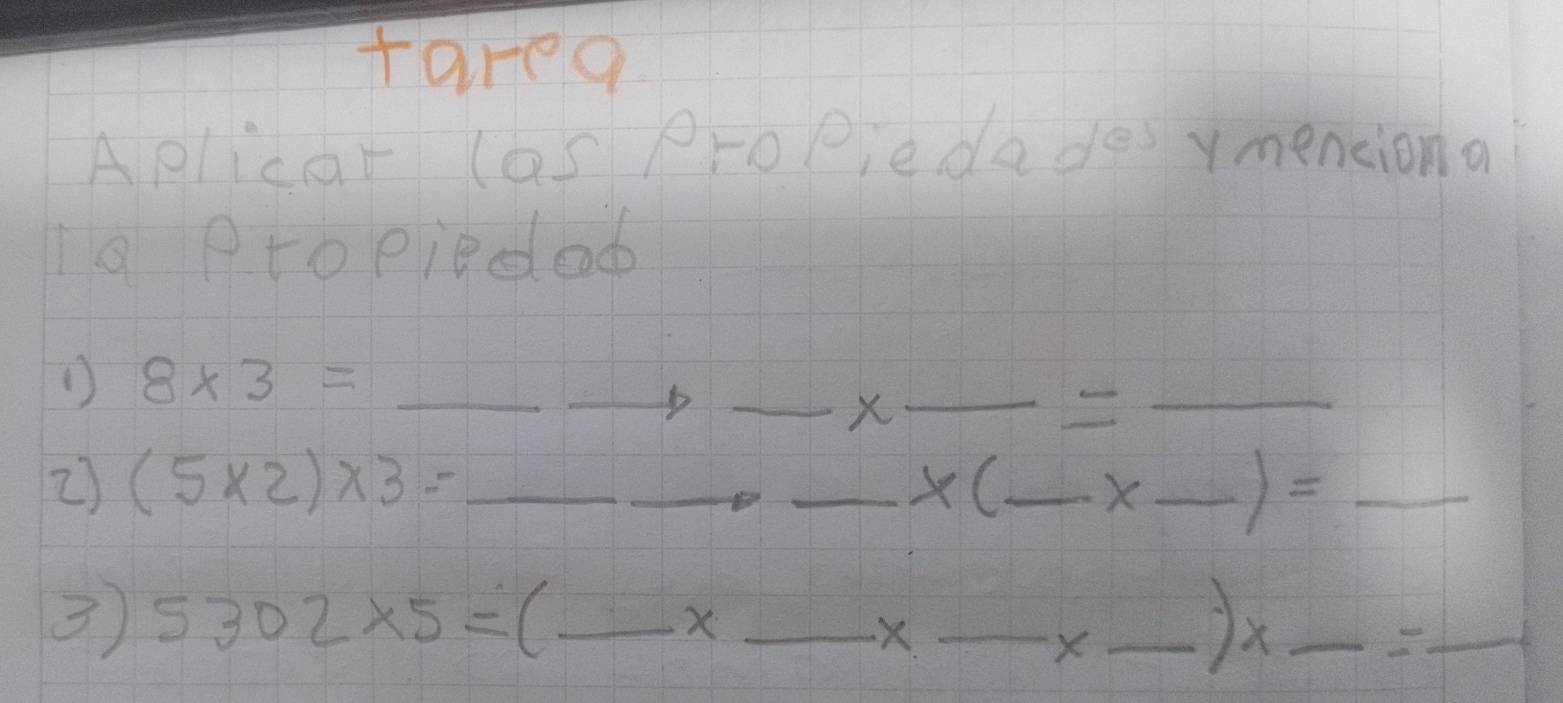 tarea
Aplicar las Propiedades y menciona
la Propiedad
1) 8 x 3 = ___ → ___ x ___ = ___
2) (5 x 2) x 3 = ___ → ___ x (___ x ___) = ___
3) 5302 x 5 = (___ x ___ x ___ x ___) x ___ = ___